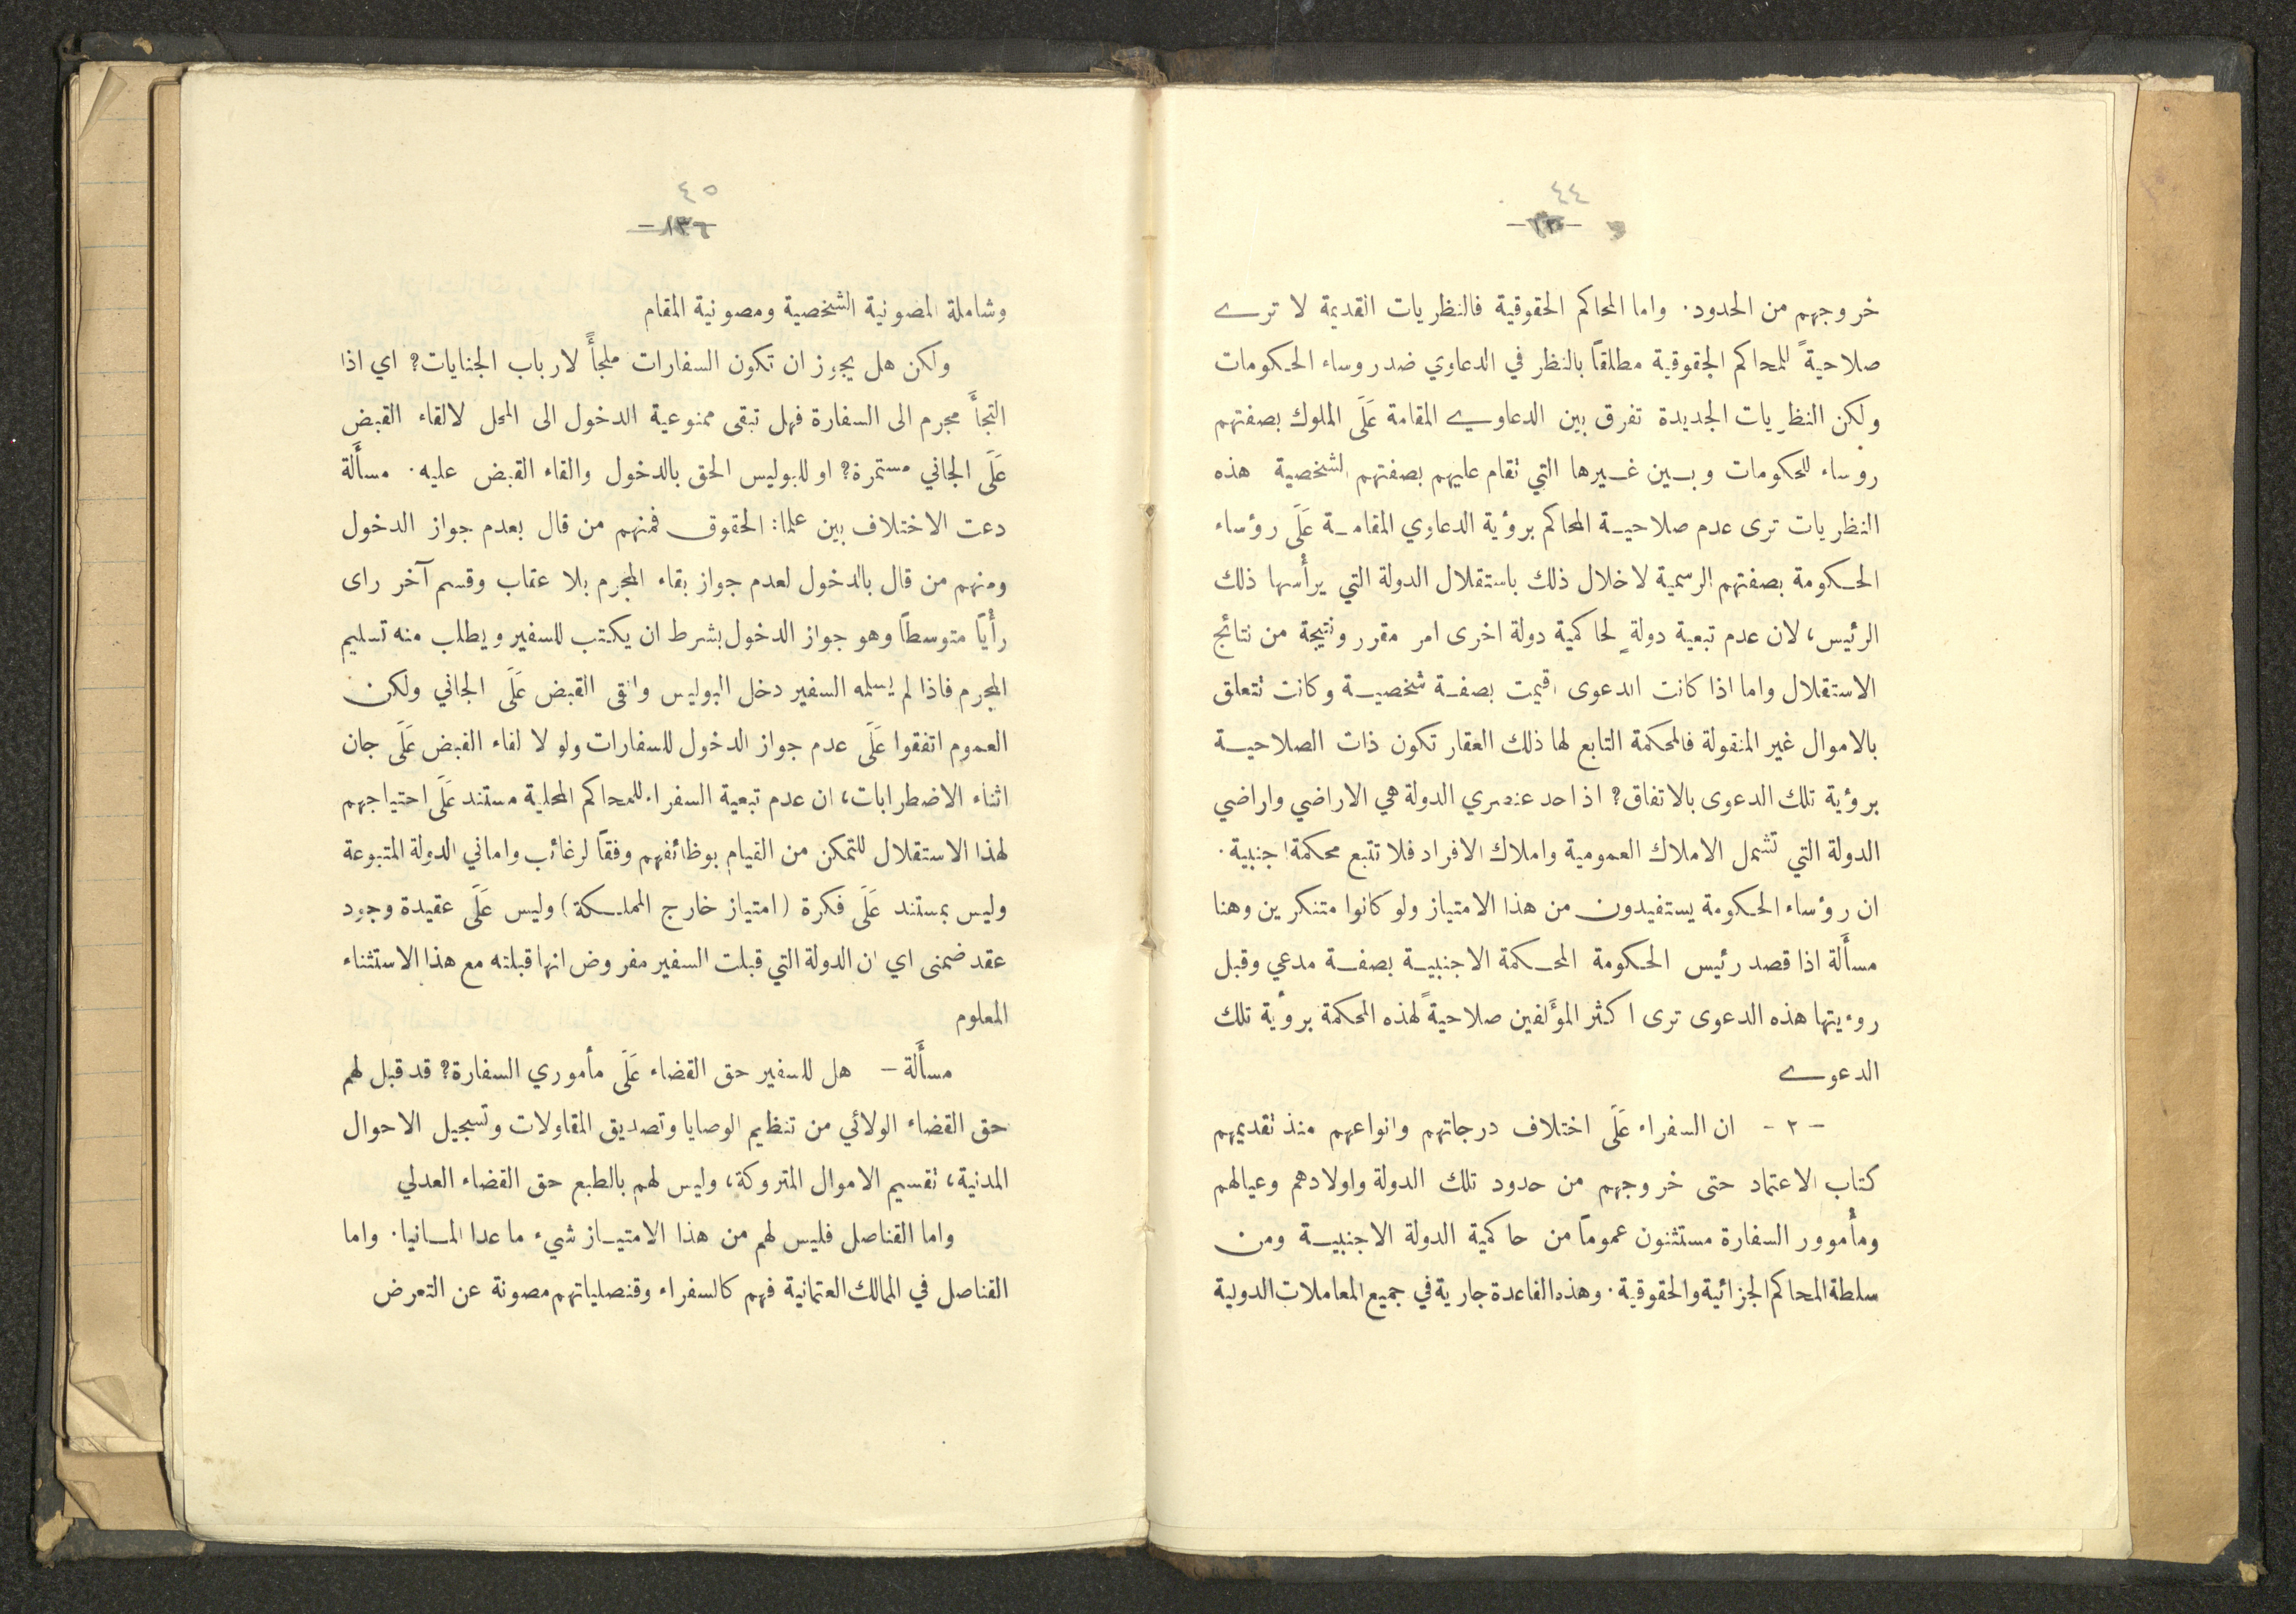 ٤٤
خروجهم من الحدود. واما المحاكم الحقوقية فالنظريات القديمة لا ترى
صلاحيةً للمحاكم الحقوقية مطلقاً بالنظر في الدعاوي ضد روساء الحكومات
ولكن النظريات الجديدة تفرق بين الدعاوي المقامة عَلَى الملوك بصفتهم
رؤساء للحكومات وبين غيرها التي تقام عليهم بصفتهم الشخصية هذه
النظريات ترى عدم صلاحية المحاكم برؤية الدعاوي المقامة عَلَى رؤساء
الحكومة بصفتهم الرسمية لاخلال ذلك باستقلال الدولة التي يرأسها ذلك
الرئيس، لان عدم تبعية دولةٍ لحاكمية دولة اخرى امر مقرر ونتيجة من نتائج
الاستقلال واما اذا كانت الدعوى اقيمت بصفة شخصية وكانت تتعلق
بالاموال غير المنقولة فالمحكمة التابع لها ذلك العقار تكون ذات الصلاحية
برؤية تلك الدعوى بالاتفاق؟ اذ احد عنصري الدولة هي الاراضي واراضي
الدولة التي تشمل الاملاك العمومية واملاك الافراد فلا تتبع محكمة اجنبية.
ان رؤساء الحكومة يستفيدون من هذا الامتياز ولو كانوا متنكرين وهنا
مسأَلة اذا قصد رئيس الحكومة المحكمة الاجنبية بصفة مدعي وقبل
روءيتها هذه الدعوى ترى اكثر المؤَلفين صلاحيةً لهذه المحكمة برؤية تلك
الدعوى
- ٢ - ان السفراء عَلَى اختلاف درجاتهم وانواعهم منذ تقديمهم
كتاب الاعتماد حتى خروجهم من حدود تلك الدولة واولادهم وعيالهم
ومأموور السفارة مستثنون عموماً من حاكمية الدولة الاجنبية ومن
سلطة المحاكم الجزائية والحقوقية. وهذه القاعدة جارية في جميع المعاملات الدولية
٤٥
-١٣٦-
وشاملة المصونية الشخصية ومصونية المقام
ولكن هل يجوز ان تكون السفارات ملجأً لارباب الجنايات؟ اي اذا
التجأَ مجرم الى السفارة فهل تبقى ممنوعية الدخول الى المحل لالقاء القبض
عَلَى الجاني مستمرة؟ او للبوليس الحق بالدخول والقاء القبض عليه. مسأَلة
دعت الاختلاف بين علماء الحقوق فمنهم من قال بعدم جواز الدخول
ومنهم من قال بالدخول لعدم جواز بقاء المجرم بلا عقاب وقسم آخر راى
رأيًا متوسطاً وهو جواز الدخول بشرط ان يكتب للسفير ويطلب منه تسليم
المجرم فاذا لم يسلمه السفير دخل البوليس والقى القبض عَلَى الجاني ولكن
العموم اتفقوا عَلَى عدم جواز الدخول للسفارات ولو لا لقاء القبض عَلَى جان
اثناء الاضطرابات، ان عدم تبعية السفراء للمحاكم المحلية مستند عَلَى احتياجهم
لهذا الاستقلال للتمكن من القيام بوظائفهم وفقاً لرغائب واماني الدولة المتبوعة
وليس بمستند عَلَى فكرة (امتياز خارج المملكة) وليس عَلَى عقيدة وجود
عقد ضمنى اي ان الدولة التي قبلت السفير مفروض انها قبلته مع هذا الاستثناء
المعلوم
مسأَلة - هل للسفير حق القضاء عَلَى مأموري السفارة؟ قد قبل لهم
حق القضاء الولائي من تنظيم الوصايا وتصديق المقاولات وتسجيل الاحوال
المدنية، تقسيم الاموال المتروكة، وليس لهم بالطبع حق القضاء العدلي
واما القناصل فليس لهم من هذا الامتياز شيء ما عدا المانيا. واما
القناصل في الممالك العثمانية فهم كالسفراء وقنصلياتهم مصونة عن التعرض